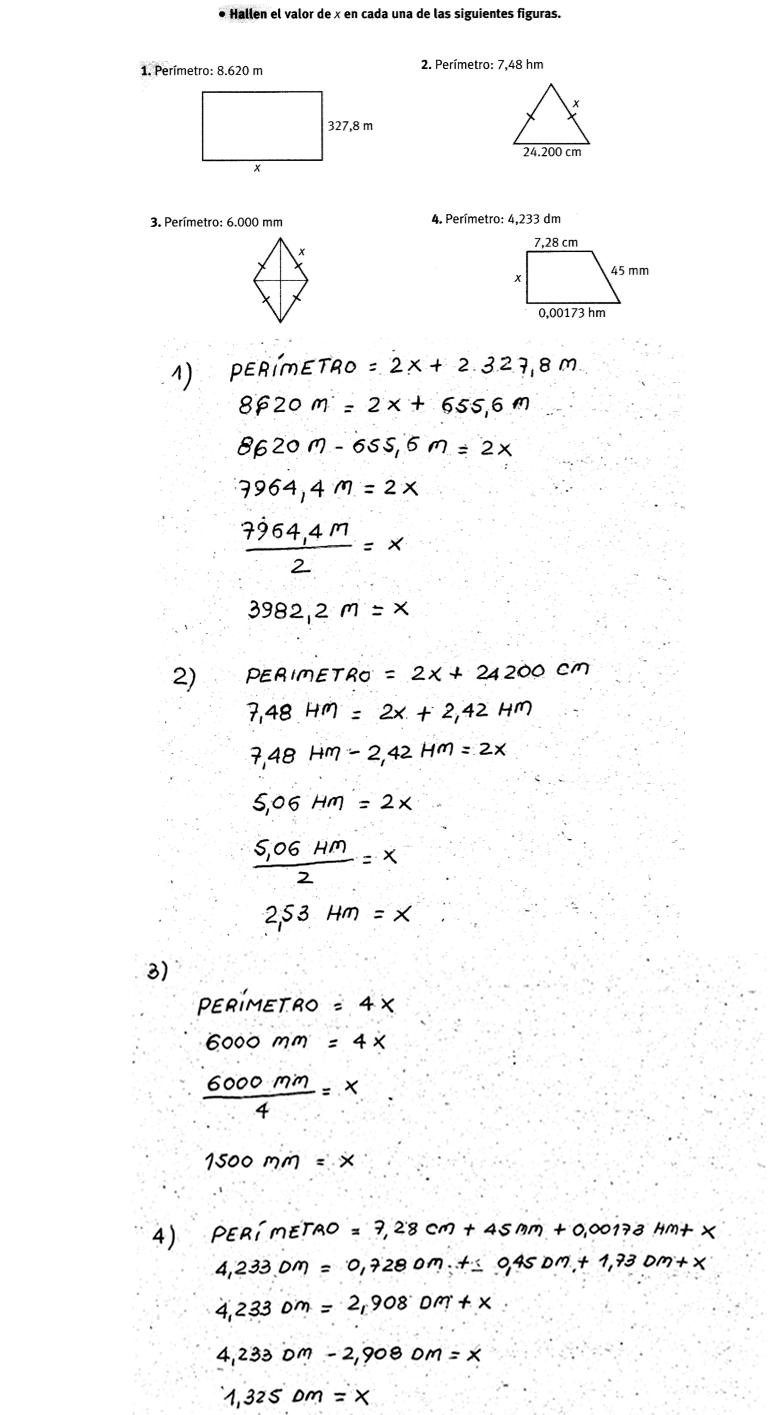 • Hallen el valor de x en cada una de las siguientes figuras.
1. Perímetro: 8.620 m
327,8 m
x
2. Perímetro: 7,48 hm
x
24.200 cm
3. Perímetro: 6.000 mm
x
4. Perímetro: 4,233 dm
7,28 cm
x
45 mm
0,00173 hm
1) PERÍMETRO = 2x + 2.327,8 m
8620 m = 2x + 655,6 m
8620 m - 655,6 m = 2x
7964,4 m = 2x
7964,4 m
2
= x
3982,2 m = x
2) PERIMETRO = 2x + 24200 cm
7,48 Hm = 2x + 2,42 Hm
7,48 Hm - 2,42 Hm = 2x
5,06 Hm = 2x
5,06 Hm
2
= x
2,53 Hm = x
3)
PERÍMETRO = 4x
6000 mm = 4x
6000 mm
4
= x
1500 mm = x
4) PERÍMETRO = 7,28 cm + 45 mm + 0,00173 Hm + x
4,233 Dm = 0,728 Dm + 0,45 Dm + 1,73 Dm + x
4,233 Dm = 2,908 Dm + x
4,233 Dm - 2,908 Dm = x
1,325 Dm = x